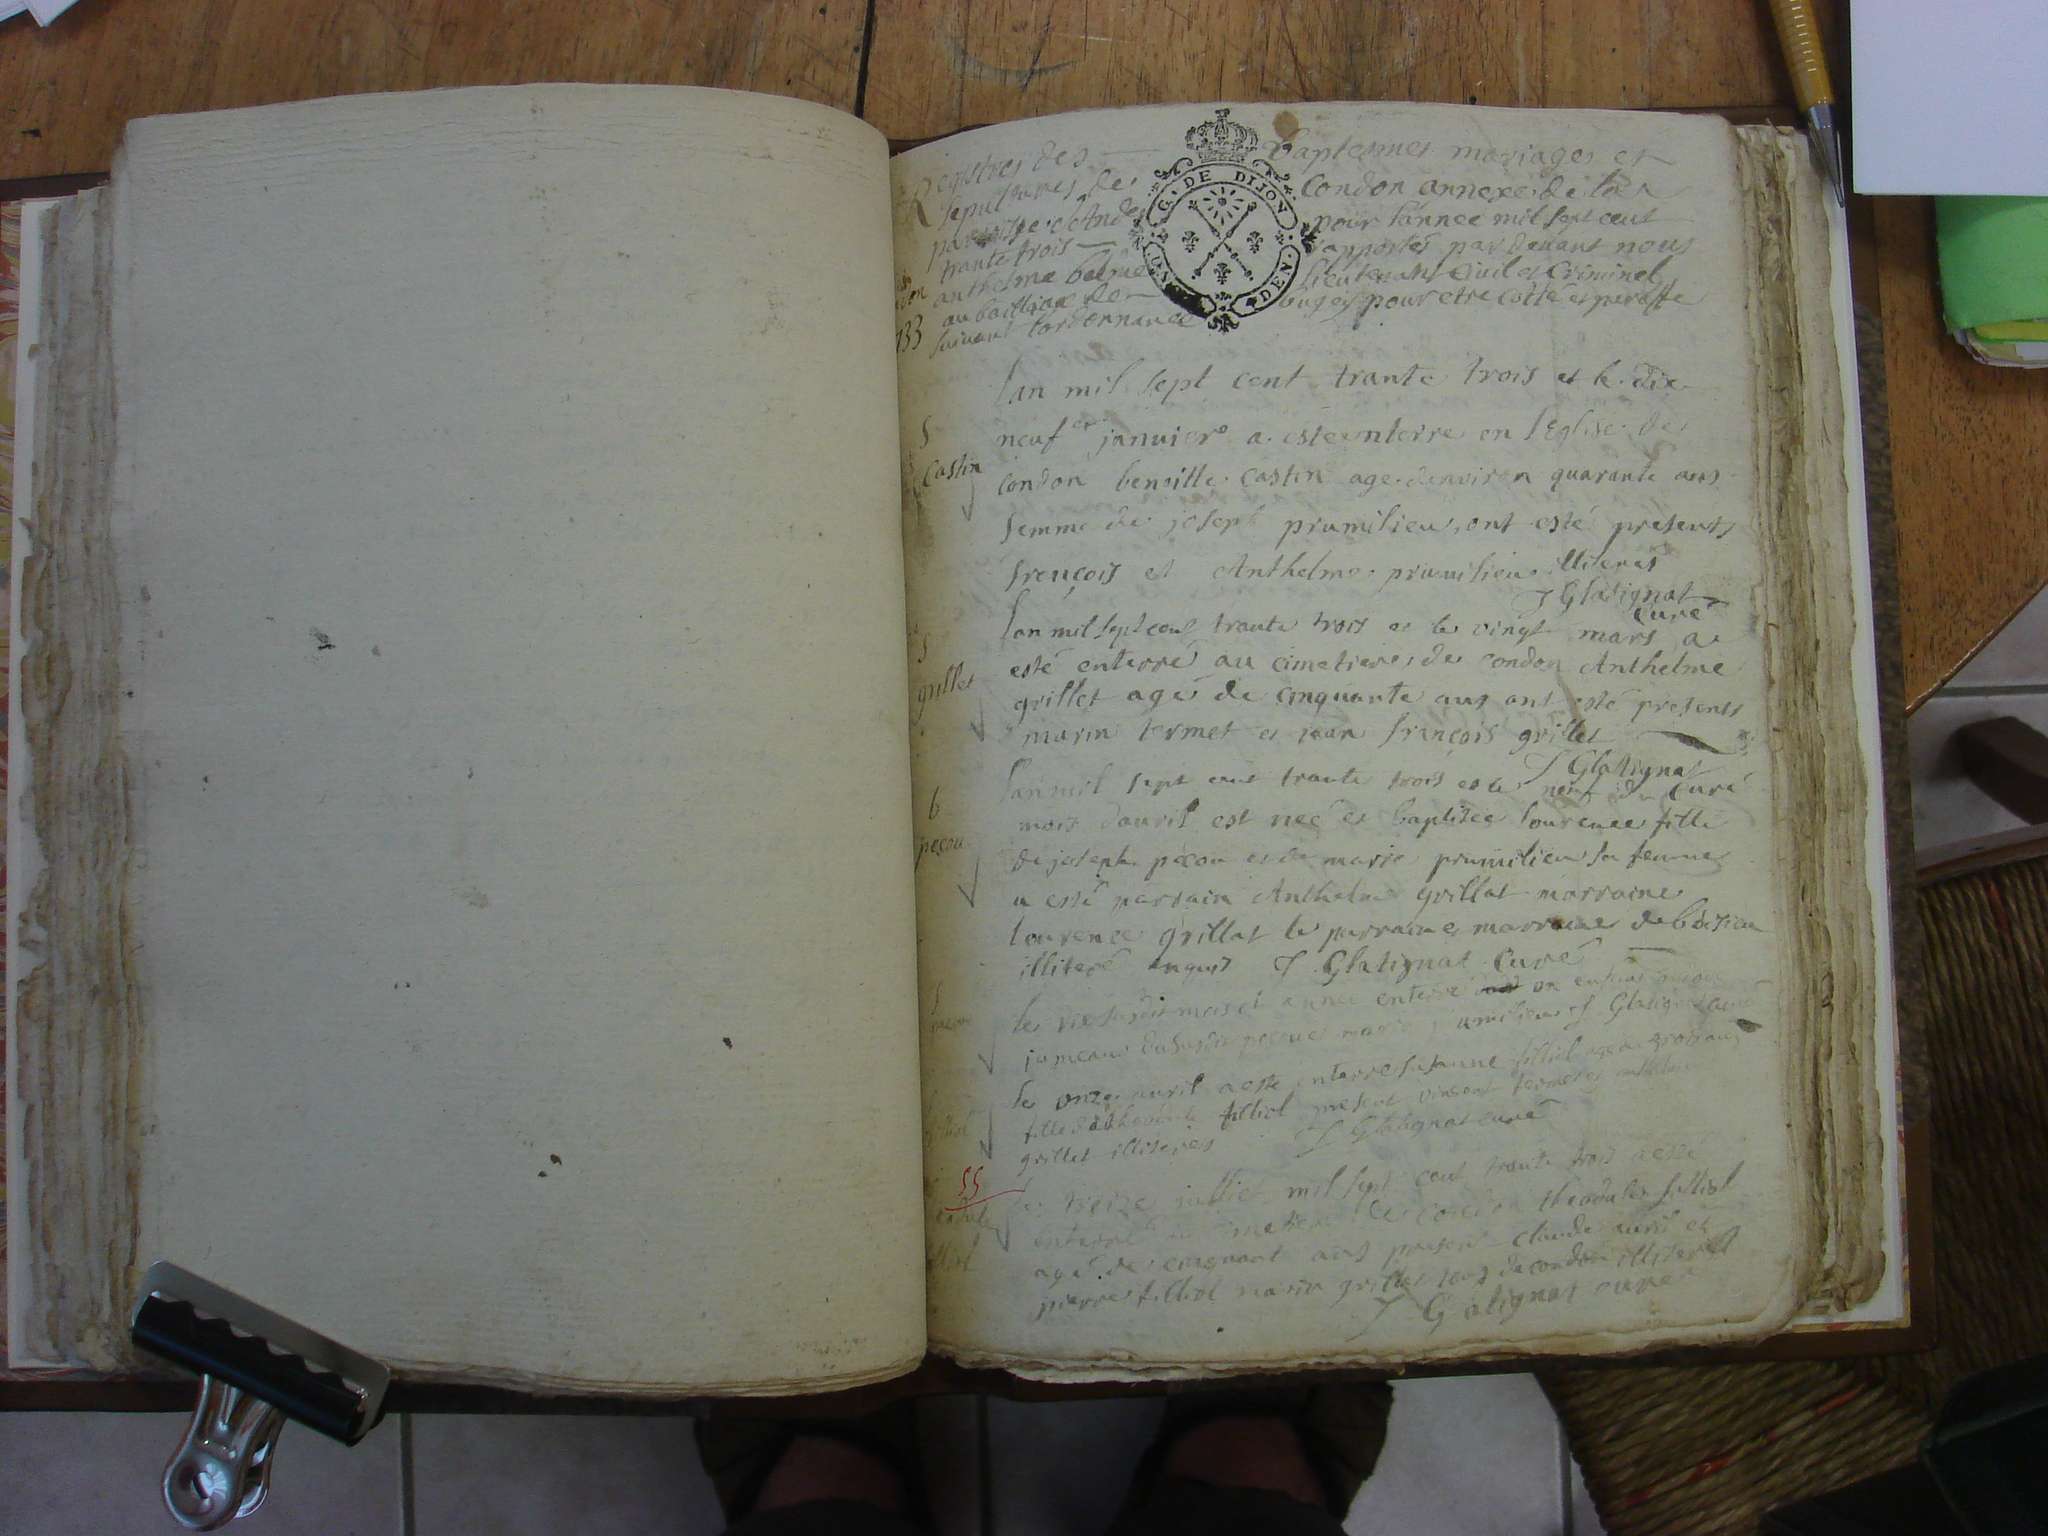 Registres des baptesmes mariages et
sepultures de Condon annexe de la
paroisse d'Ande pour lannee mil sept cent
trante trois rapportés pardevant nous
anthelme lieutenant civil et Criminel
au bailliage de bugey pour etre cotté et paraffe
suivant lordonnance
G. DE DIJON
DEN
733
lan mil sept cent trante trois et le dix
neuf janvier a esté enterre en lEglise de
condon benoitte castin age denviron quarante ans
femme de joseph prumilieu, ont esté presents
françois et Anthelme prumilieu illiteres
J Glatignat
Curé
S
Castin
lan mil sept cent trante trois et le vingt mars a
esté enterré au cimetiere de condon Anthelme
grillet agé de cinquante ans ont esté presents
marin termet et jean françois grillet
J Glatignat
Curé
S
grillet
lan mil sept cent trante trois et le neuf du
mois davril est neé et baptisée lourence fille
de joseph peçou et de marie prumilieu sa femme
a esté parrain Anthelme grillat marraine
lourence grillat le parrain et marraine de
illiteré enquis J Glatignat Curé
b
peçou
le susdit mois et annee enterré un enfant
jumeau dususdit peçou et marie prumilieu J Glatignat curé
le onze avril a esté enterré susanne filliol agé a
fille filliol present vinsent termet et anthelme
grillet illiteres J Glatignat curé
SS
le treize julliet mil sept cent trante trois a esté
enterré au cimetiere de condon theodule filliol
agé de cinquant ans present claude avril et
pierre filliol marin grillet tous de condon illiteres
J Glatignat curé